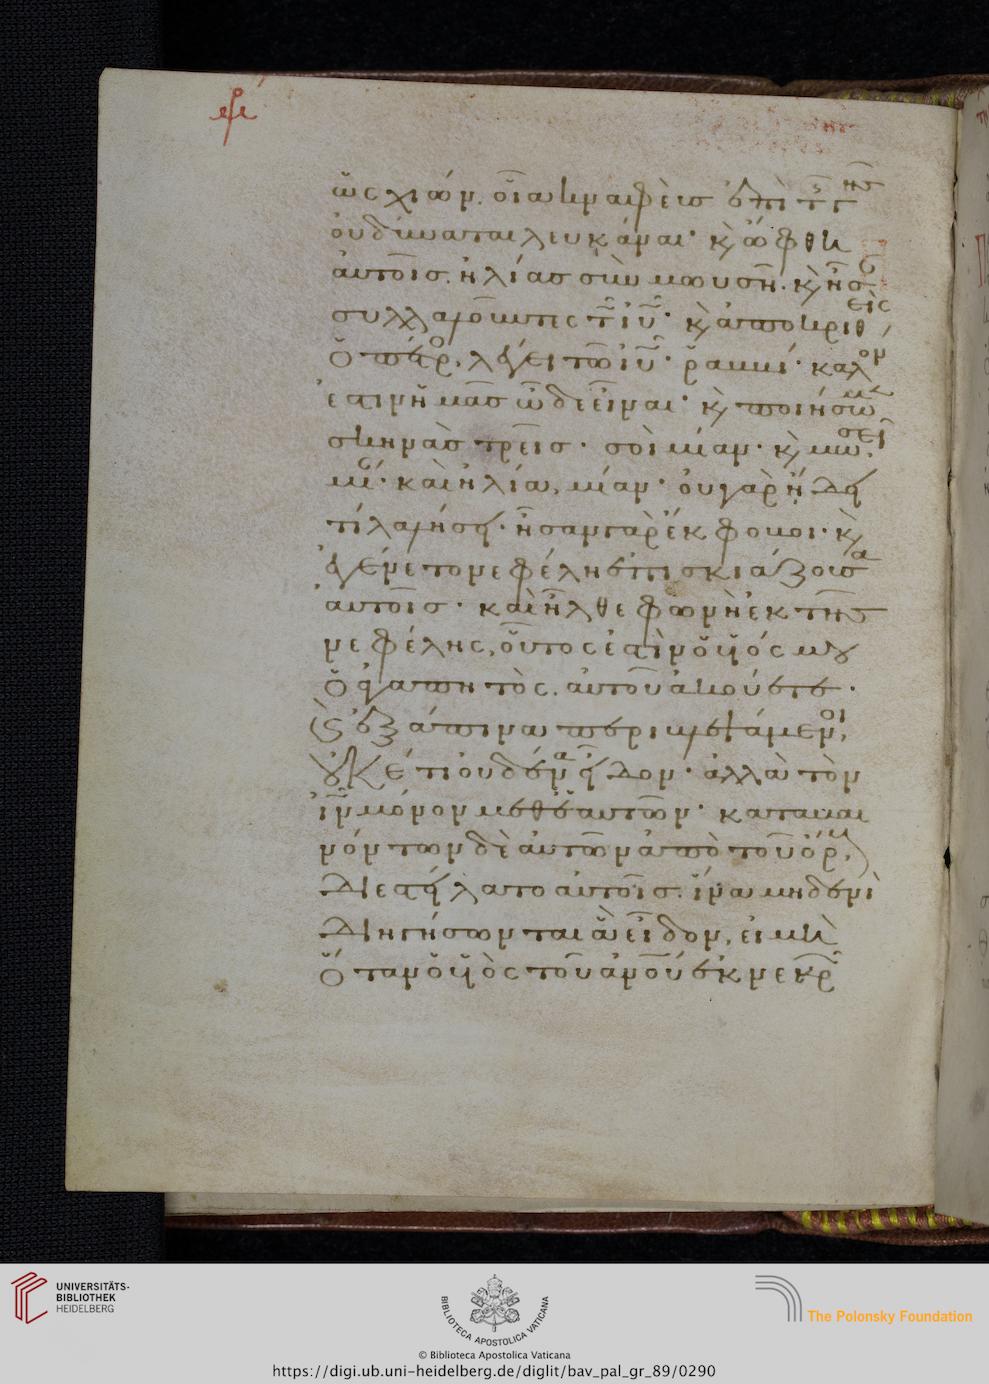 ὡς χιὼν. οἷα κναφεὺς ἐπὶ τῆς γῆς
οὐ δύναται λευκάναι· κ ὤφθη
αὐτοῖς. ἠλίας σὺν μωυσῆ. κ ἦσ
συλλαλοῦντες τῷ ἰῦ· κ ἀποκριθεὶς
ὁ πέτρ, λέγει τῷ ἰῦ· ῥαββί· καλόν
ἐστιν ἡμᾶς ὧδε εἶναι· κ ποιήσωμ
σκηνὰς τρεῖς· σοὶ μίαν· κ μωσεῖ
μί· καὶ ἠλία, μίαν· οὐ γὰρ ἤδει
τί λαλήσει· ἦσαν γὰρ ἔκφοβοι· κ
ἐγένετο νεφέλη ἐπισκιάζουσα
αὐτοῖς· καὶ ἦλθε φωνὴ ἐκ τῆς
νεφέλης, οὗτος ἐστὶν ὁ υἱός μου
ὁ ἀγαπητὸς. αὐτοῦ ἀκούετε·
κ ἐξάπινα περιβλεψάμενοι,
οὐκέτι οὐδένα εἶδον· ἀλλὰ τὸν
ἰν μόνον μεθ ἑαυτῶν· καταβαι
νόντων δὲ αὐτῶν ἀπὸ τοῦ ὄρ,
διεστείλατο αὐτοῖς. ἵνα μηδενὶ
διηγήσωνται ἃ εἶδον, εἰ μὴ
ὅταν ὁ υἱὸς τοῦ ἀνοῦ ἐκ νεκρ
UNIVERSITÄTS-
BIBLIOTHEK
HEIDELBERG
BIBLIOTECA APOSTOLICA VATICANA
The Polonsky Foundation
© Biblioteca Apostolica Vaticana
https://digi.ub.uni-heidelberg.de/diglit/bav_pal_gr_89/0290